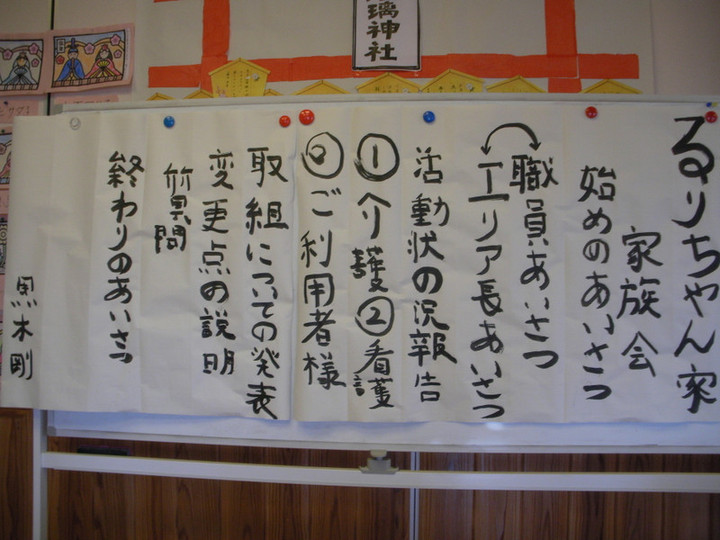 璃神社
るりちゃん家
家族会
始めのあいさつ
職員あいさつ
エリア長あいさつ
活動状の況報告
①介護②看護
③ご利用者様
取組についての発表
変更点の説明
質問
終わりのあいさつ
黒木剛